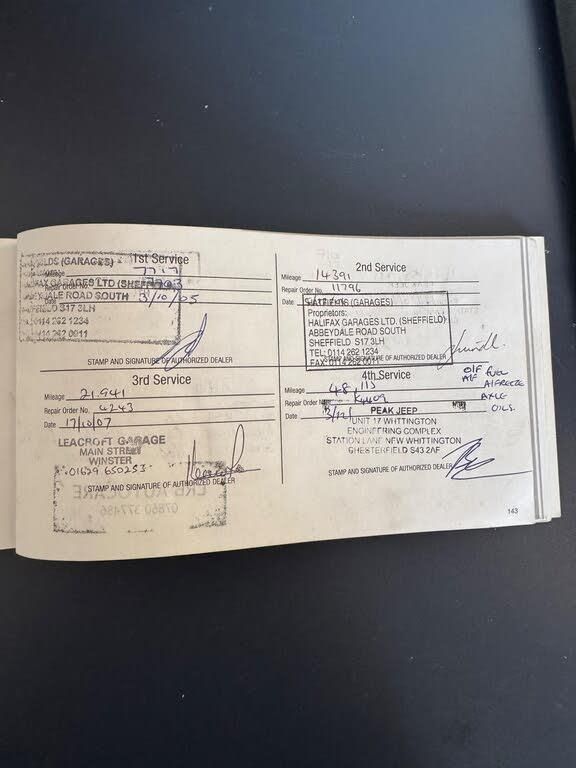 1st Service
LDS (GARAGES)
Mileage 7717
GARAGES LTD (SHEFFIELD)
Repair Order No.
DALE ROAD SOUTH
Date 3/10/05
S17 3LH
0114 262 1234
0114 262 0011
STAMP AND SIGNATURE OF AUTHORIZED DEALER
2nd Service
Mileage 14391
Repair Order No. 11796
Date
(GARAGES)
Proprietors:
HALIFAX GARAGES LTD. (SHEFFIELD)
ABBEYDALE ROAD SOUTH
SHEFFIELD S17 3LH
TEL: 0114 262 1234
FAX: 0114 262 0011
STAMP AND SIGNATURE OF AUTHORIZED DEALER
3rd Service
Mileage 21.941
Repair Order No. 4243
Date 17/10/07
LEACROFT GARAGE
MAIN STREET
WINSTER
01629 650253
STAMP AND SIGNATURE OF AUTHORIZED DEALER
LRB AUTOCARE
07860 377486
4th Service
Mileage 48,113
Repair Order No. K4409
Date 3/12/
PEAK JEEP
UNIT 17 WHITTINGTON
ENGINEERING COMPLEX
STATION LANE NEW WHITTINGTON
CHESTERFIELD S43 2AF
O/F FUEL
A/F A/FREEZE
AXLE
OILS.
STAMP AND SIGNATURE OF AUTHORIZED DEALER
143